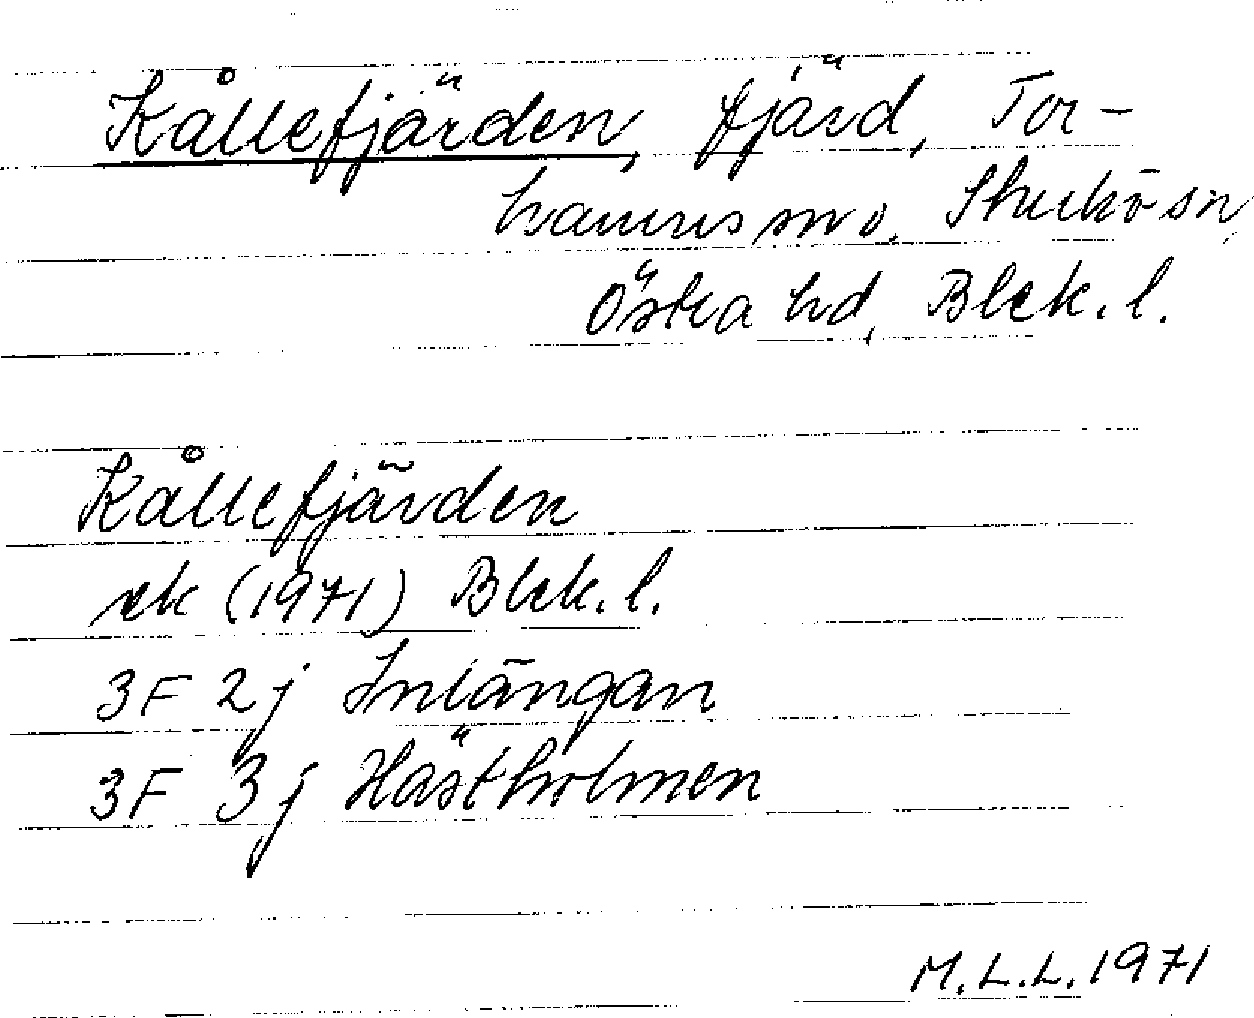 Kållefjärden, fjärd, Tor-
hamns sn o. Sturkö sn,
Östra hd, Blek. l.
Kållefjärden
ek (1971) Blek. l.
3F 2j Inlängan
3F 3j Hästholmen
M.L.L. 1971